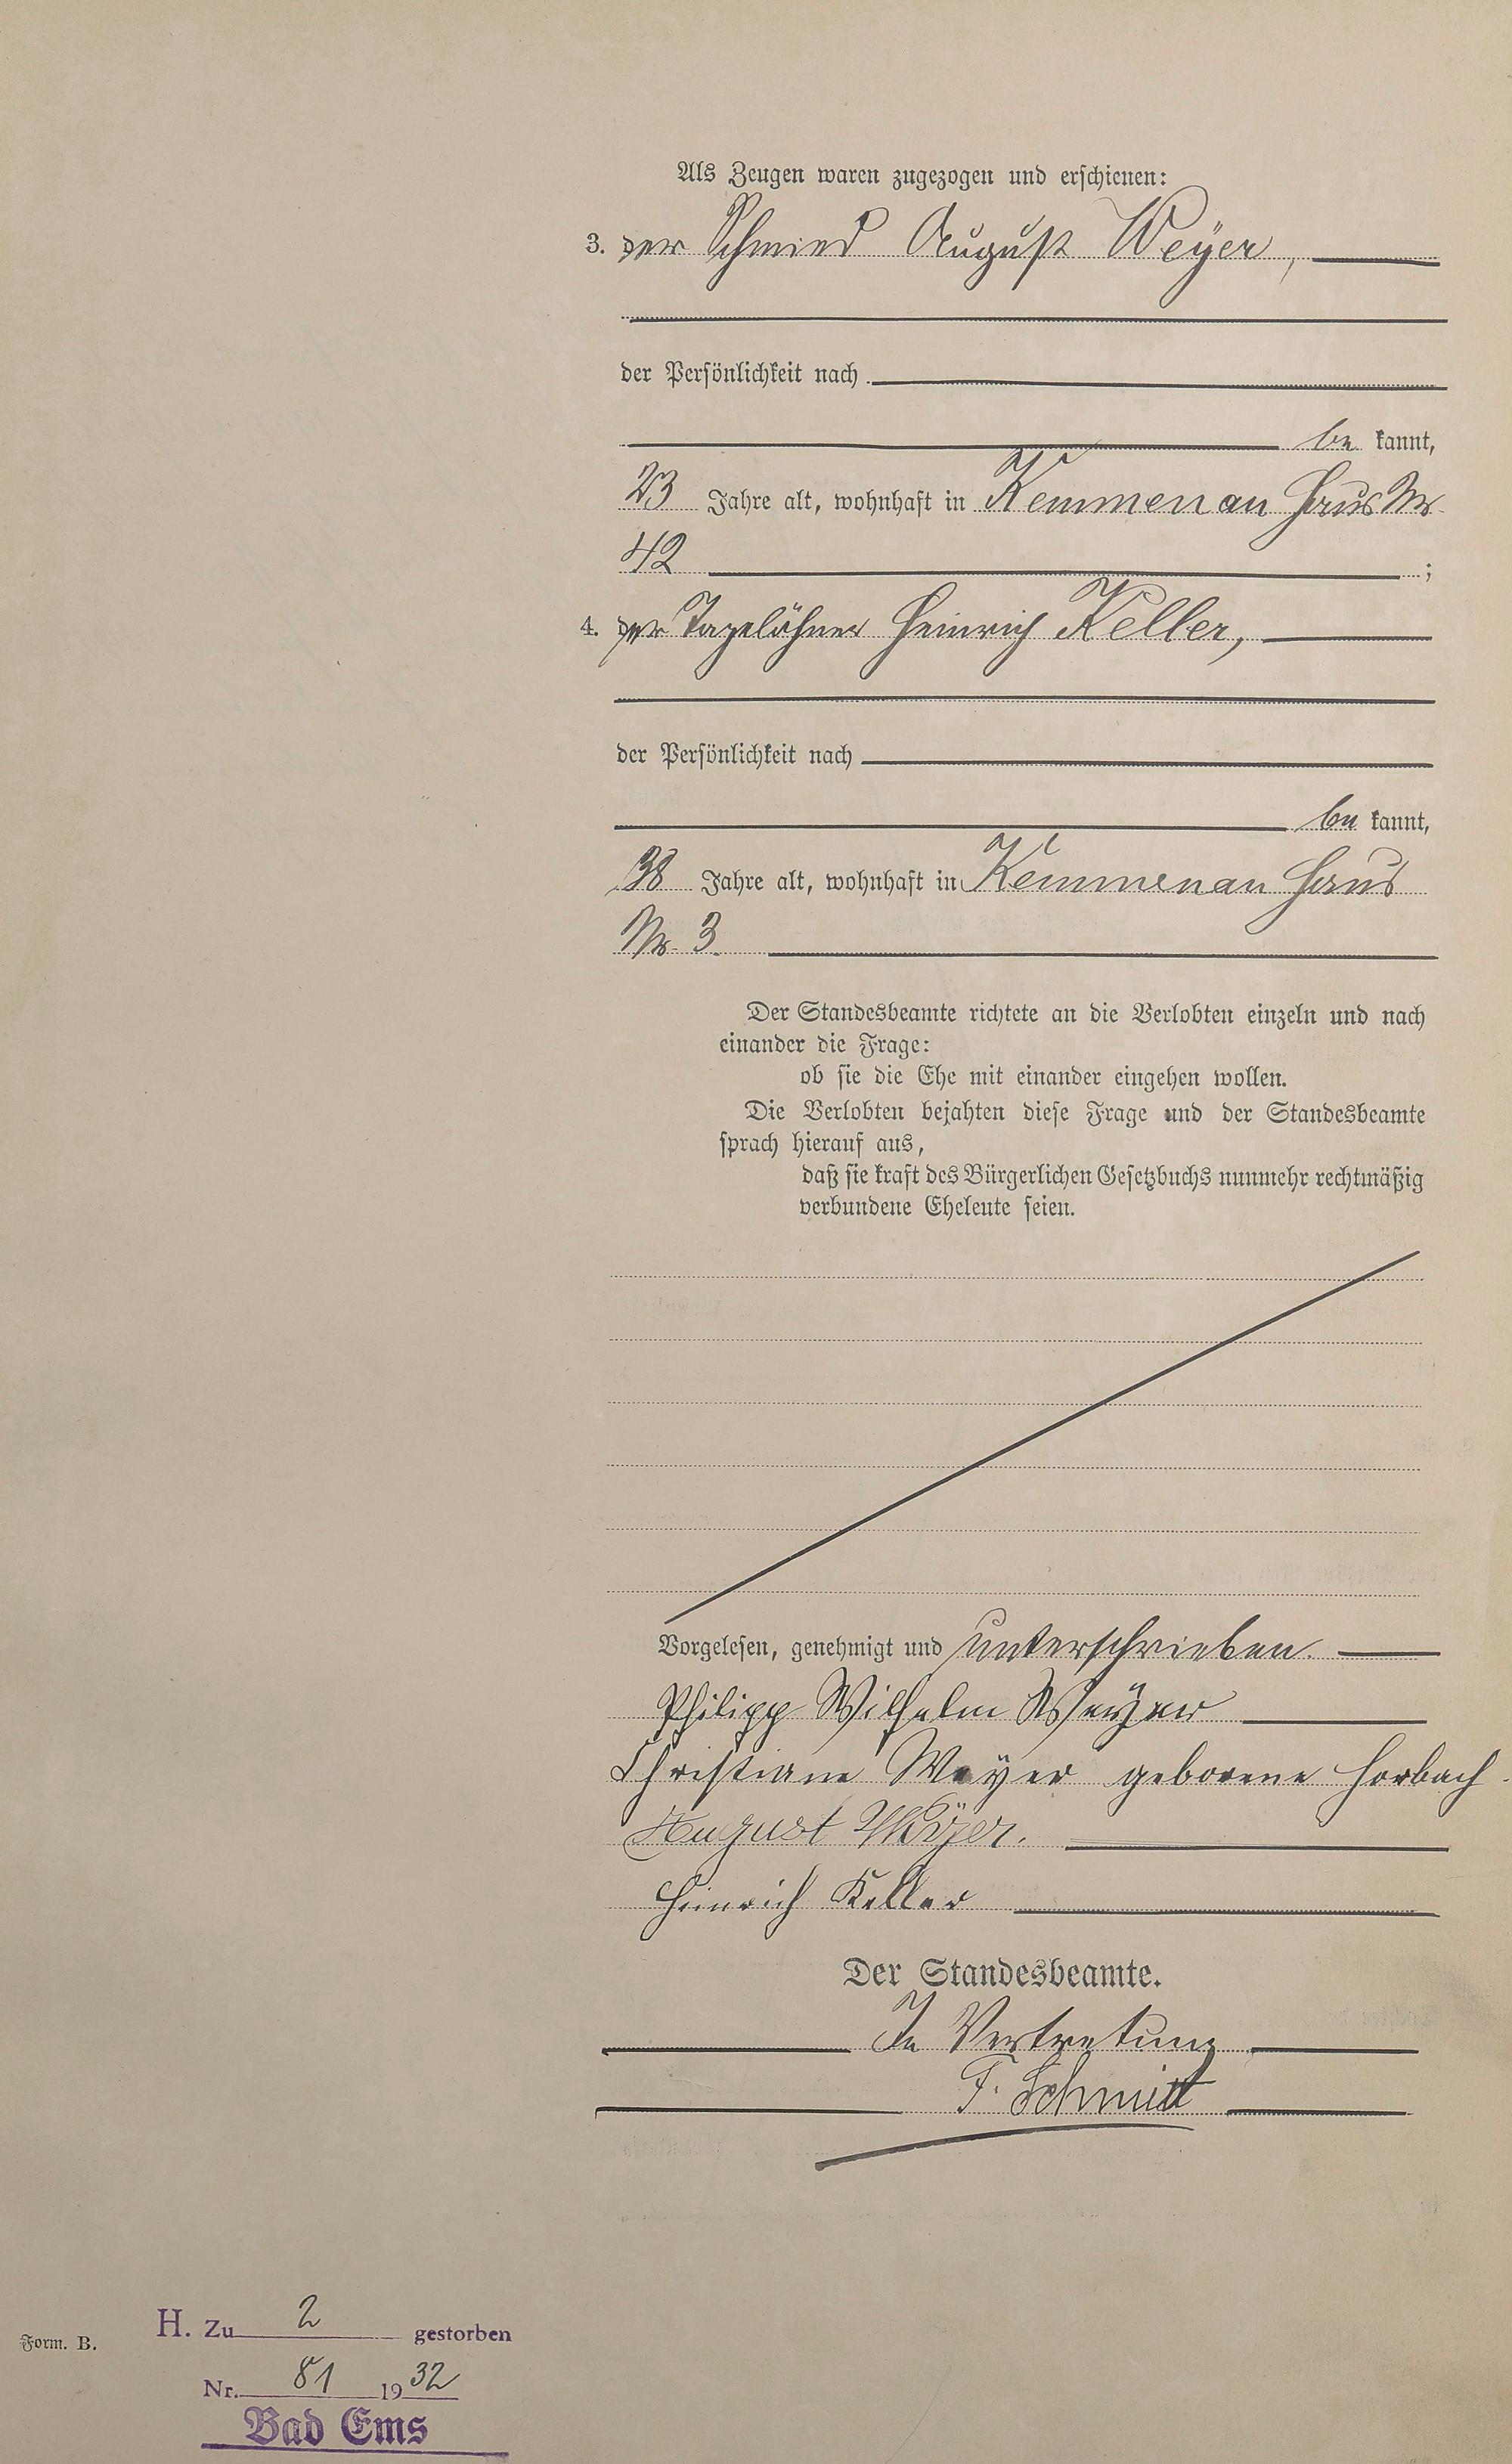 Als Zeugen waren zugezogen und erschienen:
3. der Schmied August Weyer,
der Persönlichkeit nach
be kannt,
23 Jahre alt, wohnhaft in Kemmenau Haus Nr.
42 ;
4. der Tagelöhner Heinrich Keller,
der Persönlichkeit nach
be kannt,
38 Jahre alt, wohnhaft in Kemmenau Haus
Nr. 3.
Der Standesbeamte richtete an die Verlobten einzeln und nach
einander die Frage:
ob sie die Ehe mit einander eingehen wollen.
Die Verlobten bejahten diese Frage und der Standesbeamte
sprach hierauf aus,
daß sie kraft des Bürgerlichen Gesetzbuchs nunmehr rechtmäßig
verbundene Eheleute seien.
Vorgelesen, genehmigt und unterschrieben.
Philipp Wilhelm Weyer
Christiane Weyer geborene Horbach.
August Weyer.
Heinrich Keller
Der Standesbeamte.
In Vertretung
F. Schmitt
Form. B.
H. Zu 2 gestorben
Nr. 81 1932
Bad Ems